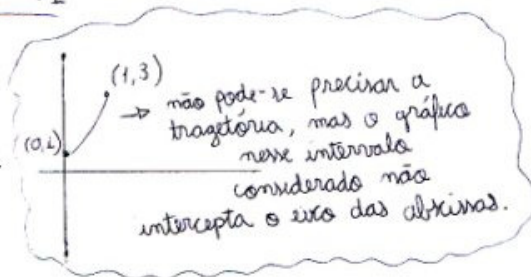 (1,3)
→ não pode-se precisar a
tragetória, mas o gráfico
(0,1)
nesse intervalo
considerado não
intercepta o eixo das abscissas.